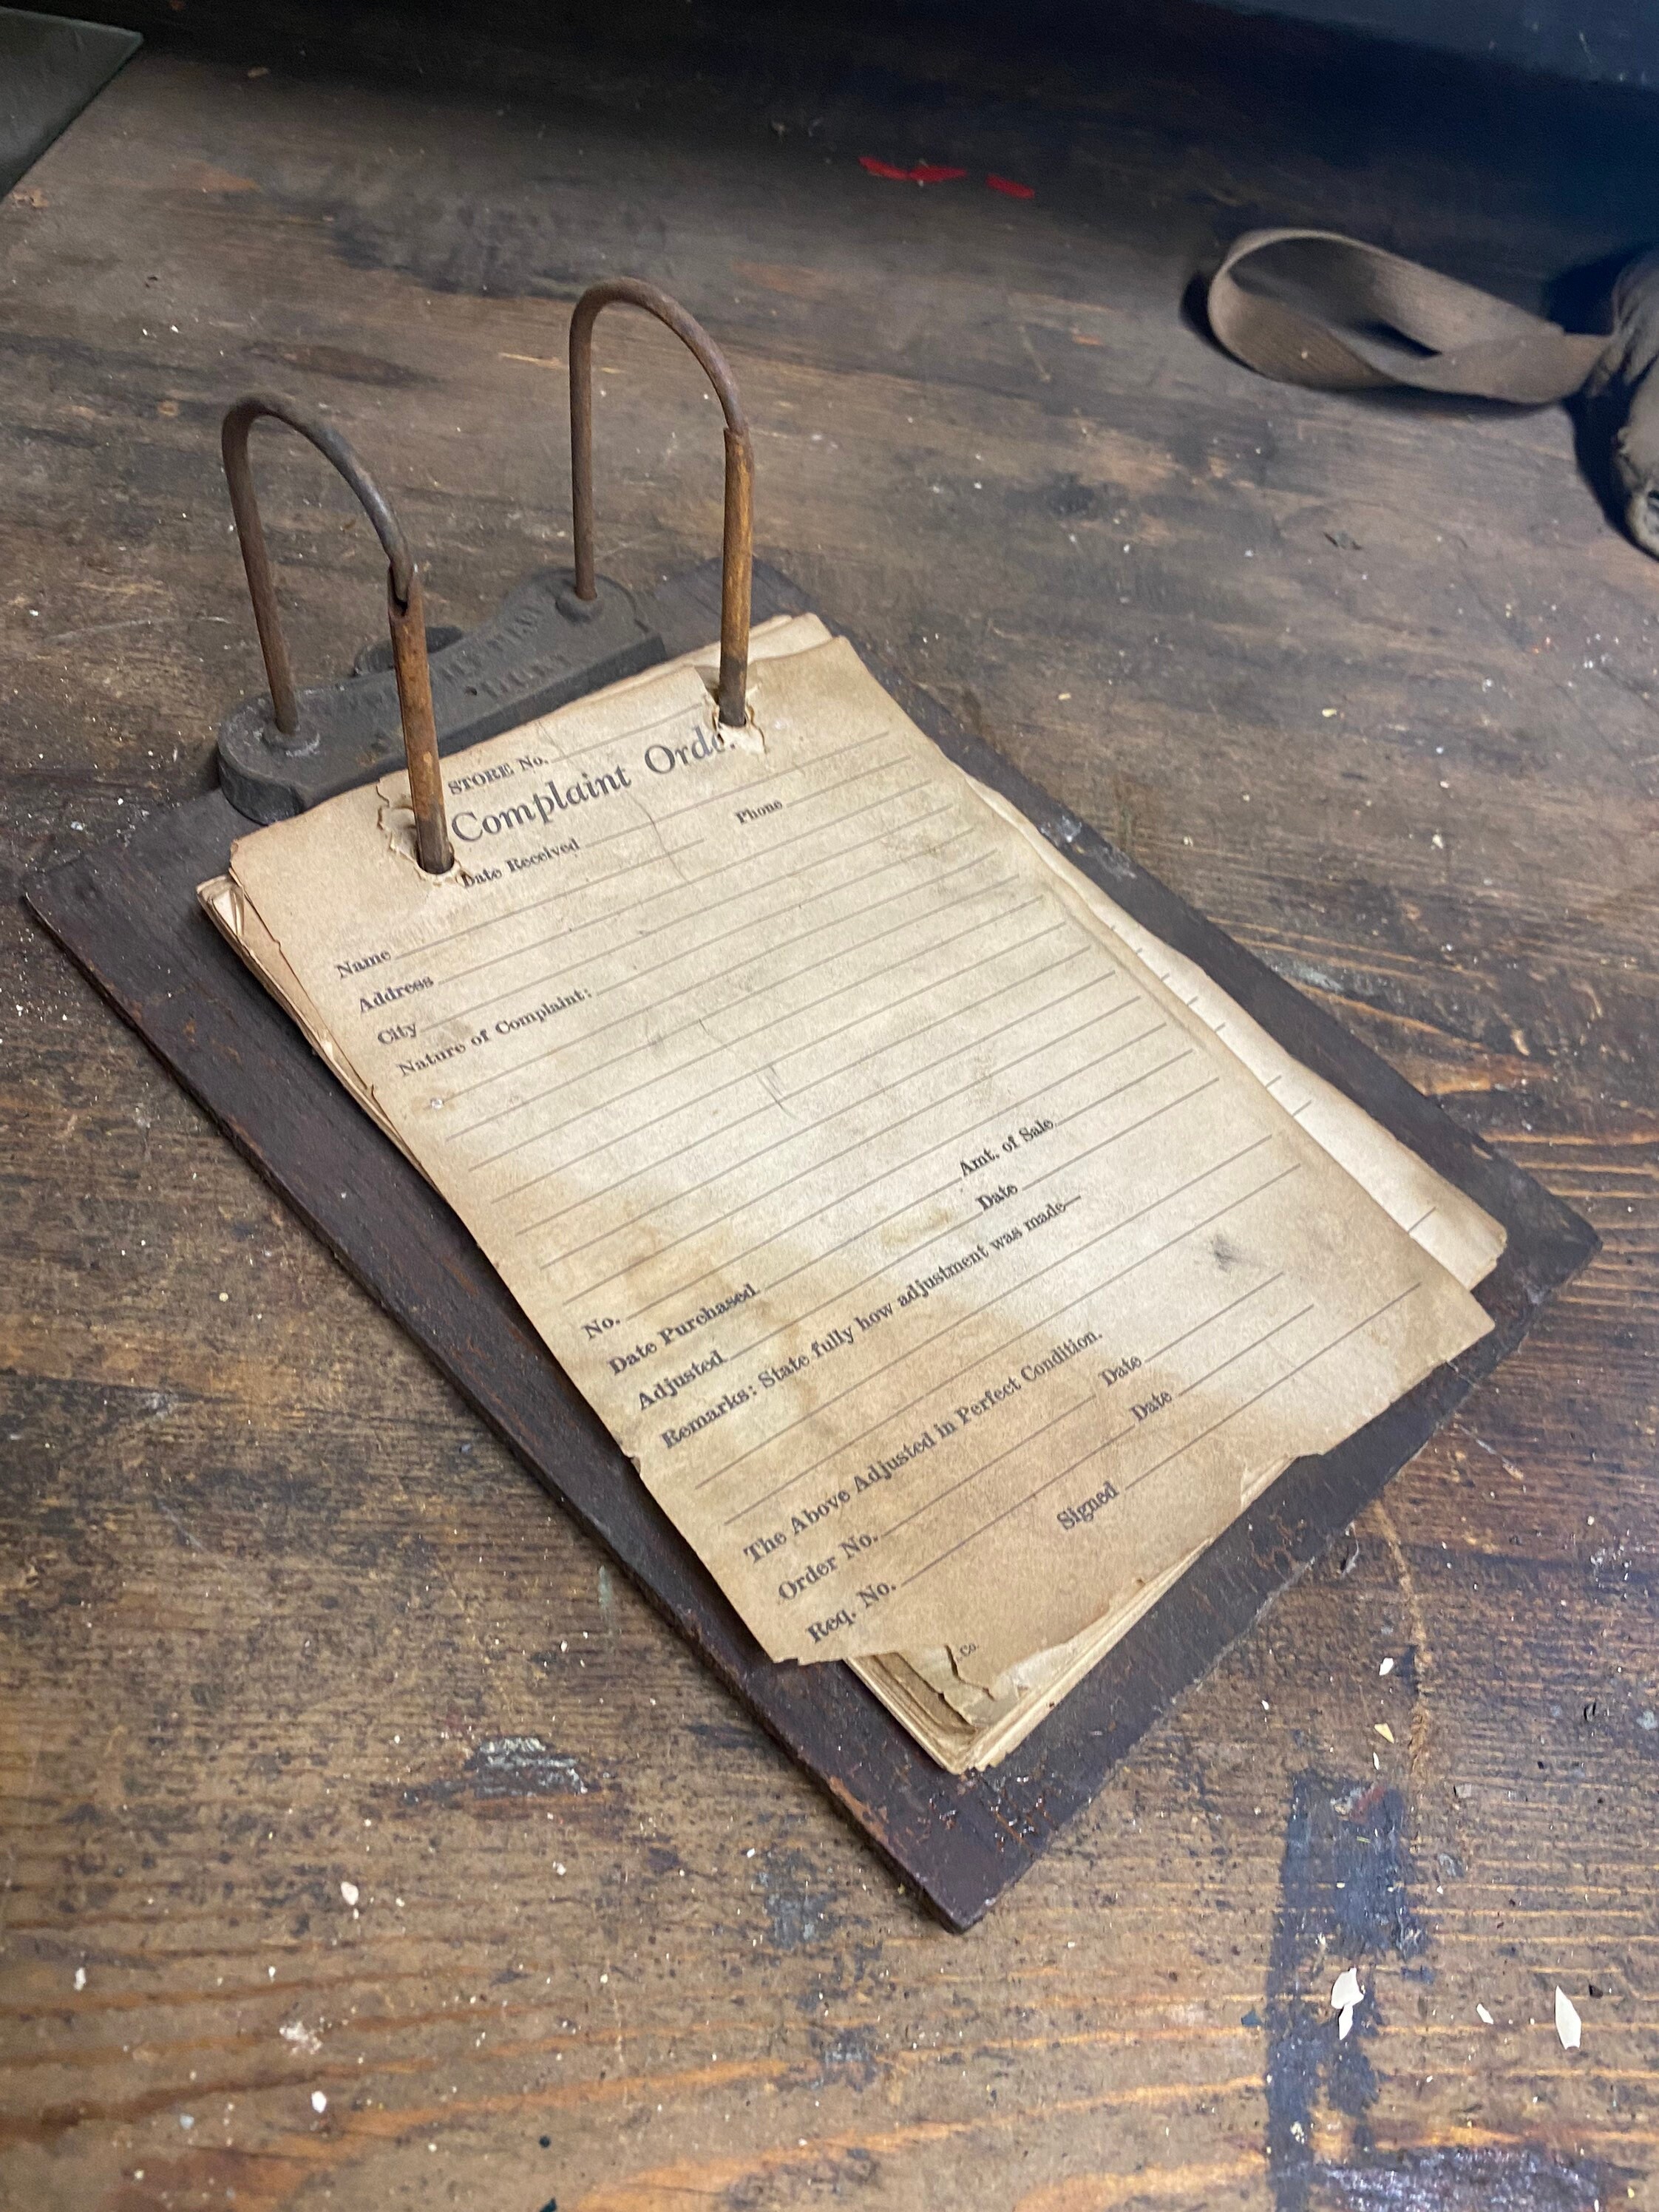 STORE No.
Complaint Orde
Date Received
Phone
Name
Address
City
Nature of Complaint:
No. Amt. of Sale
Date Purchased Date
Adjusted
Remarks: State fully how adjustment was made—
The Above Adjusted in Perfect Condition.
Order No. Date
Req. No. Date
Signed
Co.